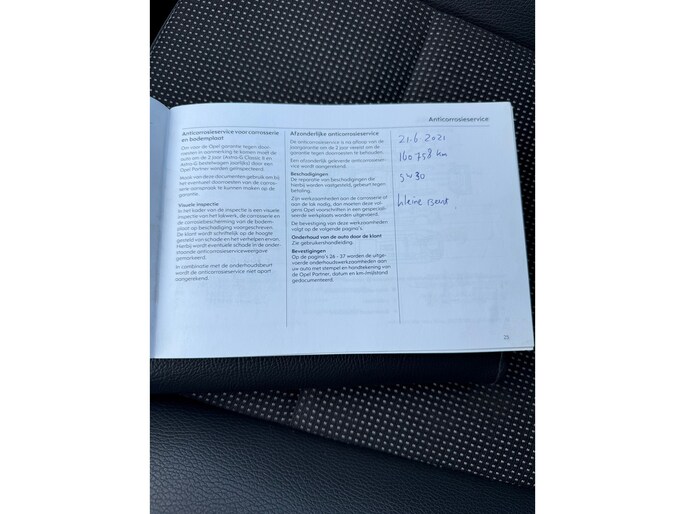 Anticorrosieservice
Anticorrosieservice voor carrosserie
en bodemplaat
Om voor de Opel garantie tegen door-
roesten in aanmerking te komen moet de
auto om de 2 jaar (Astra-G Classic II en
Astra-G bestelwagen jaarlijks) door een
Opel Partner worden geïnspecteerd.
Maak van deze documenten gebruik om bij
het eventueel doorroesten van de carros-
serie aanspraak te kunnen maken op de
garantie.
Visuele inspectie
In het kader van de inspectie is een visuele
inspectie van het lakwerk, de carrosserie en
de corrosiebescherming van de bodem-
plaat op beschadiging voorgeschreven.
De klant wordt schriftelijk op de hoogte
gesteld van schade en het verhelpen ervan.
Hierbij wordt eventuele schade in de onder-
staande anticorrosieserviceweergave
gemarkeerd.
In combinatie met de onderhoudsbeurt
wordt de anticorrosieservice niet apart
aangerekend.
Afzonderlijke anticorrosieservice
De anticorrosieservice is na afloop van de
garantie om de 2 jaar vereist om de
garantie tegen doorroesten te behouden.
Een afzonderlijk geleverde anticorrosieser-
vice wordt aangerekend.
Beschadigingen
De reparatie van beschadigingen die
hierbij worden vastgesteld, gebeurt tegen
betaling.
Zijn werkzaamheden aan de carrosserie of
van de lak nodig, dan moeten deze vol-
gens Opel voorschriften in een gespeciali-
seerde werkplaats worden uitgevoerd.
De bevestiging van deze werkzaamheden
volgt op de volgende pagina's.
Onderhoud van de auto door de klant
Zie gebruikershandleiding.
Bevestigingen
Op de pagina's 26 - 37 worden de uitge-
voerde onderhoudswerkzaamheden aan
uw auto met stempel en handtekening van
de Opel Partner, datum en km/mijlstand
gedocumenteerd.
21.6 2021
160758 km
5W30
kleine Beurt
25